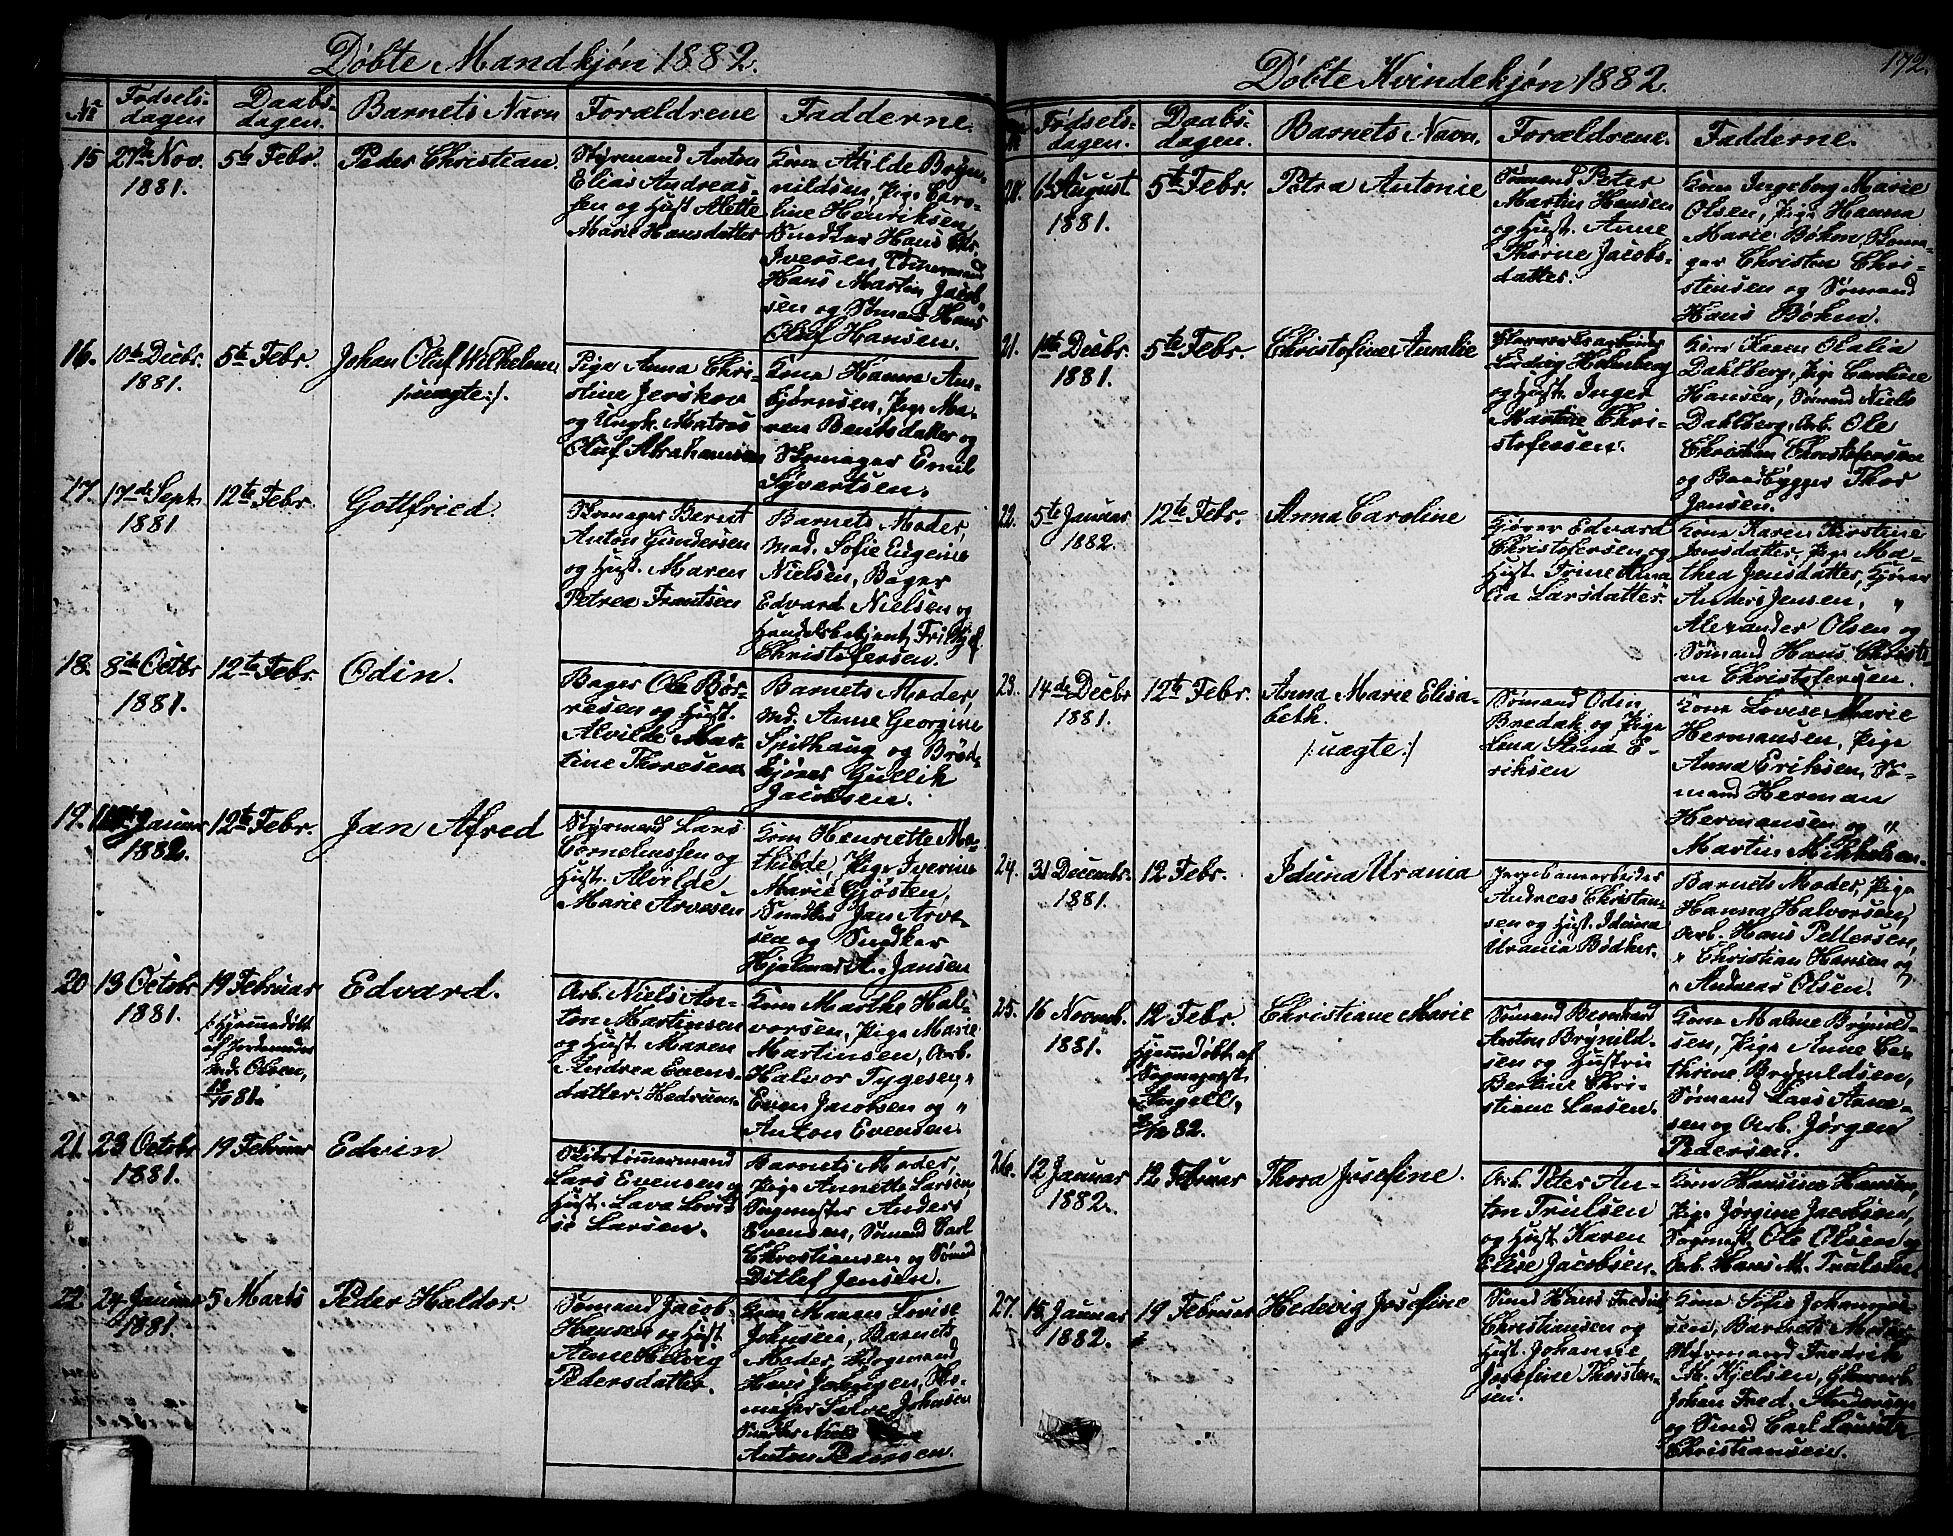 Døbte Mandkjøn 1882.
№ Fødsels-dagen Daabs-dagen. Barnets Navn Forældrene Fadderne.
15 27de Nov. 1881. 5te Febr. Peder Christian.
Styrmand Anton
Elias Andreas-
sen og Hust. Alette
Marie Hansdatter
Kone Milde Bryn-
nildsen, Pige Caro-
line Henriksen
Snedker Hans Chr.
Iversen Tømmermand
Hans Martin Jacob-
sen og Sømand Hans
Olaf Hansen.
16. 10de Decbr. 1881. 5te Febr. Johan Olaf Wilhelm
/:uægte:/.
Pige Anna Chri-
stine Jerskov
og Ungk. Matros
Oluf Abrahamsen
Kone Hanna Ans-
bjørnsen, Pige Ma-
ren Bentsdatter og
Skomager Emil
Syvartsen.
17. 17de Sept. 1881 12te Febr. Gottfried.
Skomager Bernt
Anton Gundersen
og Hust. Maren
Petrea Frantsen
Barnets Moder,
Mad. Sofie Eugenie
Nielsen, Bager
Edvard Nielsen og
Handelsbetjent Fritjof
Christofersen.
18. 8de Octbr 1881. 12te Febr. Odin.
Bager Ole Bør-
resen og Hust.
Alvilde Mar-
tine Thoresen
Barnets Moder,
Md. Anne Georgine
Spithaug og Brød-
kjører Gullik
Jacobsen.
19. Januar 1882. 12te Febr. Jan Alfred
Styrmand Lars
Corneliussen og
Hust. Alvilde
Marie Arvesen
Kone Henriette Ma-
thilde, Pige Iverine
Marie Gjøsten,
Snedker Jan Arve-
sen og Snedker
Hjalmar A. Jansen
20 13 Octobr 1881. 19 Februar Edvard.
/: Hjemmedøbt
af Jordemoder
Md. Olsen,
81.
Arb. Niels An-
ton Martinsen
og Hust. Maren
Andrea Evens-
datter. Hedrum.
Kone Marthe Hal-
vorsen, Pige Marie
Martinsen, Arb.
Halvor Tygesen, "
Even Jacobsen og "
Anton Evensen.
21. 23 Octobr 1881. 19 Februar Edvin
Skibstømmermand
Lars Evensen og
Hust. Lava Lovi-
se Larsen.
Barnets Moder,
Pige Annette Larsen,
Sagmester Anders
Evensen, Sømand Carl
Christiansen og Sømand
Ditlef Jensen.
22. 24 Januar 1881. 5 Marts Peder Haldor.
Sømand Jacob
Hansen og Hust
Anne Helvig
Pedersdatter.
Kone Maren Lovise
Johnsen, Barnets
Moder, Bogmand
Hans Johnsen, Sko-
mager Salve Johnsen
Snedker Niels
Anton Pedersen.
Døbte Kvindekjøn 1882.
172.
№ Fødsels-dagen. Daabs-dagen. Barnets Navn. Forældrene. Fadderne.
20. 6te August 1881. 5te Febr. Petra Antonie
Sømand Peter
Martin Hansen
og Hust. Anne
Thorine Jacobs-
datter.
Kone Ingeborg Marie
Olsen, Pige Hanna
Marie Bøhm, Skoma-
ger Christen Chri-
stensen og Sømand
Hans Bøhm.
21. 1ste Decbr. 1881. 5te Febr. Christofine Amalie
Ludvig Holmberg
og Hust. Inger
Martine Chri-
stofersen.
Kone Karen Olalia
Dahlberg, Pige Caroline
Hansen, Sømand Niels
Dahlberg, Arb. Ole
Christian Christofersen
og Baadbygger Thor
Jensen.
22. 5te Januar 1882. 12te Febr. Anna Caroline
Kjører Edvard
Christofersen og
Hust. Trine Ama-
lia Larsdatter.
Kone Karen Kirstine
Jensdatter, Pige Ma-
thea Jensdatter, Kjører
Anders Jensen, "
Alexander Olsen og
Sømand Hans Christi-
an Christofersen.
23. 14de Decbr 1881. 12te Febr. Anna Marie Elisa-
beth.
/:uægte:/
Sømand Odin
Bredak og Pige
Lena Stina E-
riksen
Kone Lovise Marie
Hermansen, Pige
Anna Eriksen, Sø-
mand Herman
Hermansen og "
Martin Mikkelsen.
24. 31 Decembr. 1881. 12 Febr. Iduna Urania
Andreas Christian-
sen og Hust. Iduna
Urania Bødker.
Barnets Moder, Pige
Hanna Halvorsen,
Arb. Hans Pettersen,
" Christian Hansen og
" Andreas Olsen.
25. 16 Novmb. 1881. 12 Febr. Christiane Marie
Hjemmedøbt af
Sogneprest
Angell,
82.
Sømand Bernhard
Anton Brynild-
sen og Hustru
Bertine Chri-
stiane Larsen.
Kone Malene Brynild-
sen, Pige Anne Ca-
thrine Brynildsen,
Sømand Lars Arne-
sen og Arb. Jørgen
Pedersen.
26. 12 Januar 1882. 12 Februar Thora Josefine.
Arb. Peter An-
ton Trulsen
og Hust. Karen
Elise Jacobsen.
Kone Hansine Hansen,
Pige Jørgine Jacobsen,
Sagmest. Ole Olsen og
Arb. Hans M. Trulsen.
27. 15 Januar 1882. 19 Februar Hedevig Josefine
Smed Hans Fredrik
Christiansen og
Hust. Johanne
Josefine Thorsten-
sen.
Kone Sofie Johanne-
sen, Barnets Moder,
Styrmand Fredrik
M. Kjelsen,
Johan Fred. Andersen
og Smed Carl Lauritz
Christiansen.